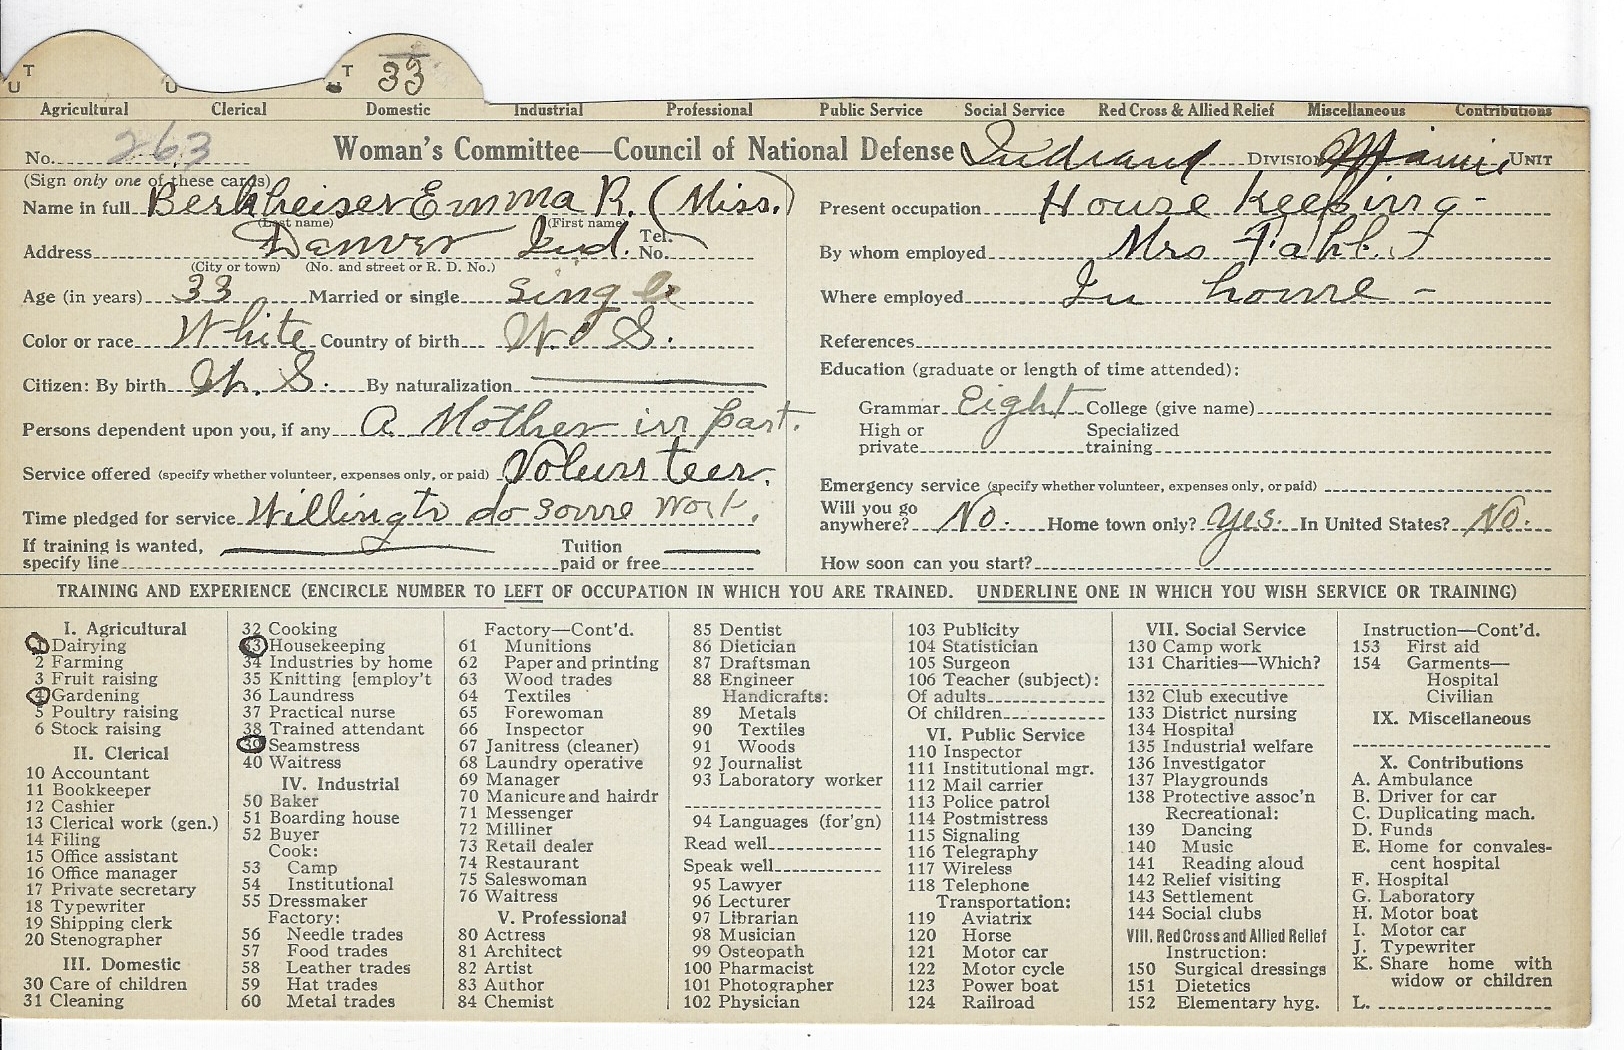 T U U T 33
Agricultural Clerical Domestic Industrial Professional Public Service Social Service Red Cross & Allied Relief Miscellaneous Contributions
No. 263 Woman's Committee—Council of National Defense Indiana DIVISION Miami UNIT
(Sign only one of these cards)
Name in full Berkheiser Emma R. (Miss.)
(Last name) (First name)
Address Denver Ind. Tel. No.
(City or town) (No. and street or R. D. No.)
Age (in years) 33 Married or single Single
Color or race White Country of birth U. S.
Citizen: By birth U. S. By naturalization
Persons dependent upon you, if any A Mother in part.
Service offered (specify whether volunteer, expenses only, or paid) Volunteer.
Time pledged for service Willing to do some work.
If training is wanted, specify line Tuition paid or free
Present occupation House keeping-
By whom employed Mrs
Where employed In home -
References
Education (graduate or length of time attended):
Grammar Eight College (give name)
High or private Specialized training
Emergency service (specify whether volunteer, expenses only, or paid)
Will you go anywhere? No. Home town only? Yes. In United States? No.
How soon can you start?
TRAINING AND EXPERIENCE (ENCIRCLE NUMBER TO LEFT OF OCCUPATION IN WHICH YOU ARE TRAINED. UNDERLINE ONE IN WHICH YOU WISH SERVICE OR TRAINING)
I. Agricultural
1 Dairying
2 Farming
3 Fruit raising
4 Gardening
5 Poultry raising
6 Stock raising
II. Clerical
10 Accountant
11 Bookkeeper
12 Cashier
13 Clerical work (gen.)
14 Filing
15 Office assistant
16 Office manager
17 Private secretary
18 Typewriter
19 Shipping clerk
20 Stenographer
III. Domestic
30 Care of children
31 Cleaning
32 Cooking
33 Housekeeping
34 Industries by home
35 Knitting [employ't
36 Laundress
37 Practical nurse
38 Trained attendant
39 Seamstress
40 Waitress
IV. Industrial
50 Baker
51 Boarding house
52 Buyer
Cook:
53 Camp
54 Institutional
55 Dressmaker
Factory:
56 Needle trades
57 Food trades
58 Leather trades
59 Hat trades
60 Metal trades
Factory—Cont'd.
61 Munitions
62 Paper and printing
63 Wood trades
64 Textiles
65 Forewoman
66 Inspector
67 Janitress (cleaner)
68 Laundry operative
69 Manager
70 Manicure and hairdr
71 Messenger
72 Milliner
73 Retail dealer
74 Restaurant
75 Saleswoman
76 Waitress
V. Professional
80 Actress
81 Architect
82 Artist
83 Author
84 Chemist
85 Dentist
86 Dietician
87 Draftsman
88 Engineer
Handicrafts:
89 Metals
90 Textiles
91 Woods
92 Journalist
93 Laboratory worker
94 Languages (for'gn)
Read well
Speak well
95 Lawyer
96 Lecturer
97 Librarian
98 Musician
99 Osteopath
100 Pharmacist
101 Photographer
102 Physician
103 Publicity
104 Statistician
105 Surgeon
106 Teacher (subject):
Of adults
Of children
VI. Public Service
110 Inspector
111 Institutional mgr.
112 Mail carrier
113 Police patrol
114 Postmistress
115 Signaling
116 Telegraphy
117 Wireless
118 Telephone
Transportation:
119 Aviatrix
120 Horse
121 Motor car
122 Motor cycle
123 Power boat
124 Railroad
VII. Social Service
130 Camp work
131 Charities—Which?
132 Club executive
133 District nursing
134 Hospital
135 Industrial welfare
136 Investigator
137 Playgrounds
138 Protective assoc'n
Recreational:
139 Dancing
140 Music
141 Reading aloud
142 Relief visiting
143 Settlement
144 Social clubs
VIII. Red Cross and Allied Relief
Instruction:
150 Surgical dressings
151 Dietetics
152 Elementary hyg.
Instruction—Cont'd.
153 First aid
154 Garments—
Hospital
Civilian
IX. Miscellaneous
X. Contributions
A. Ambulance
B. Driver for car
C. Duplicating mach.
D. Funds
E. Home for convales-
cent hospital
F. Hospital
G. Laboratory
H. Motor boat
I. Motor car
J. Typewriter
K. Share home with
widow or children
L.